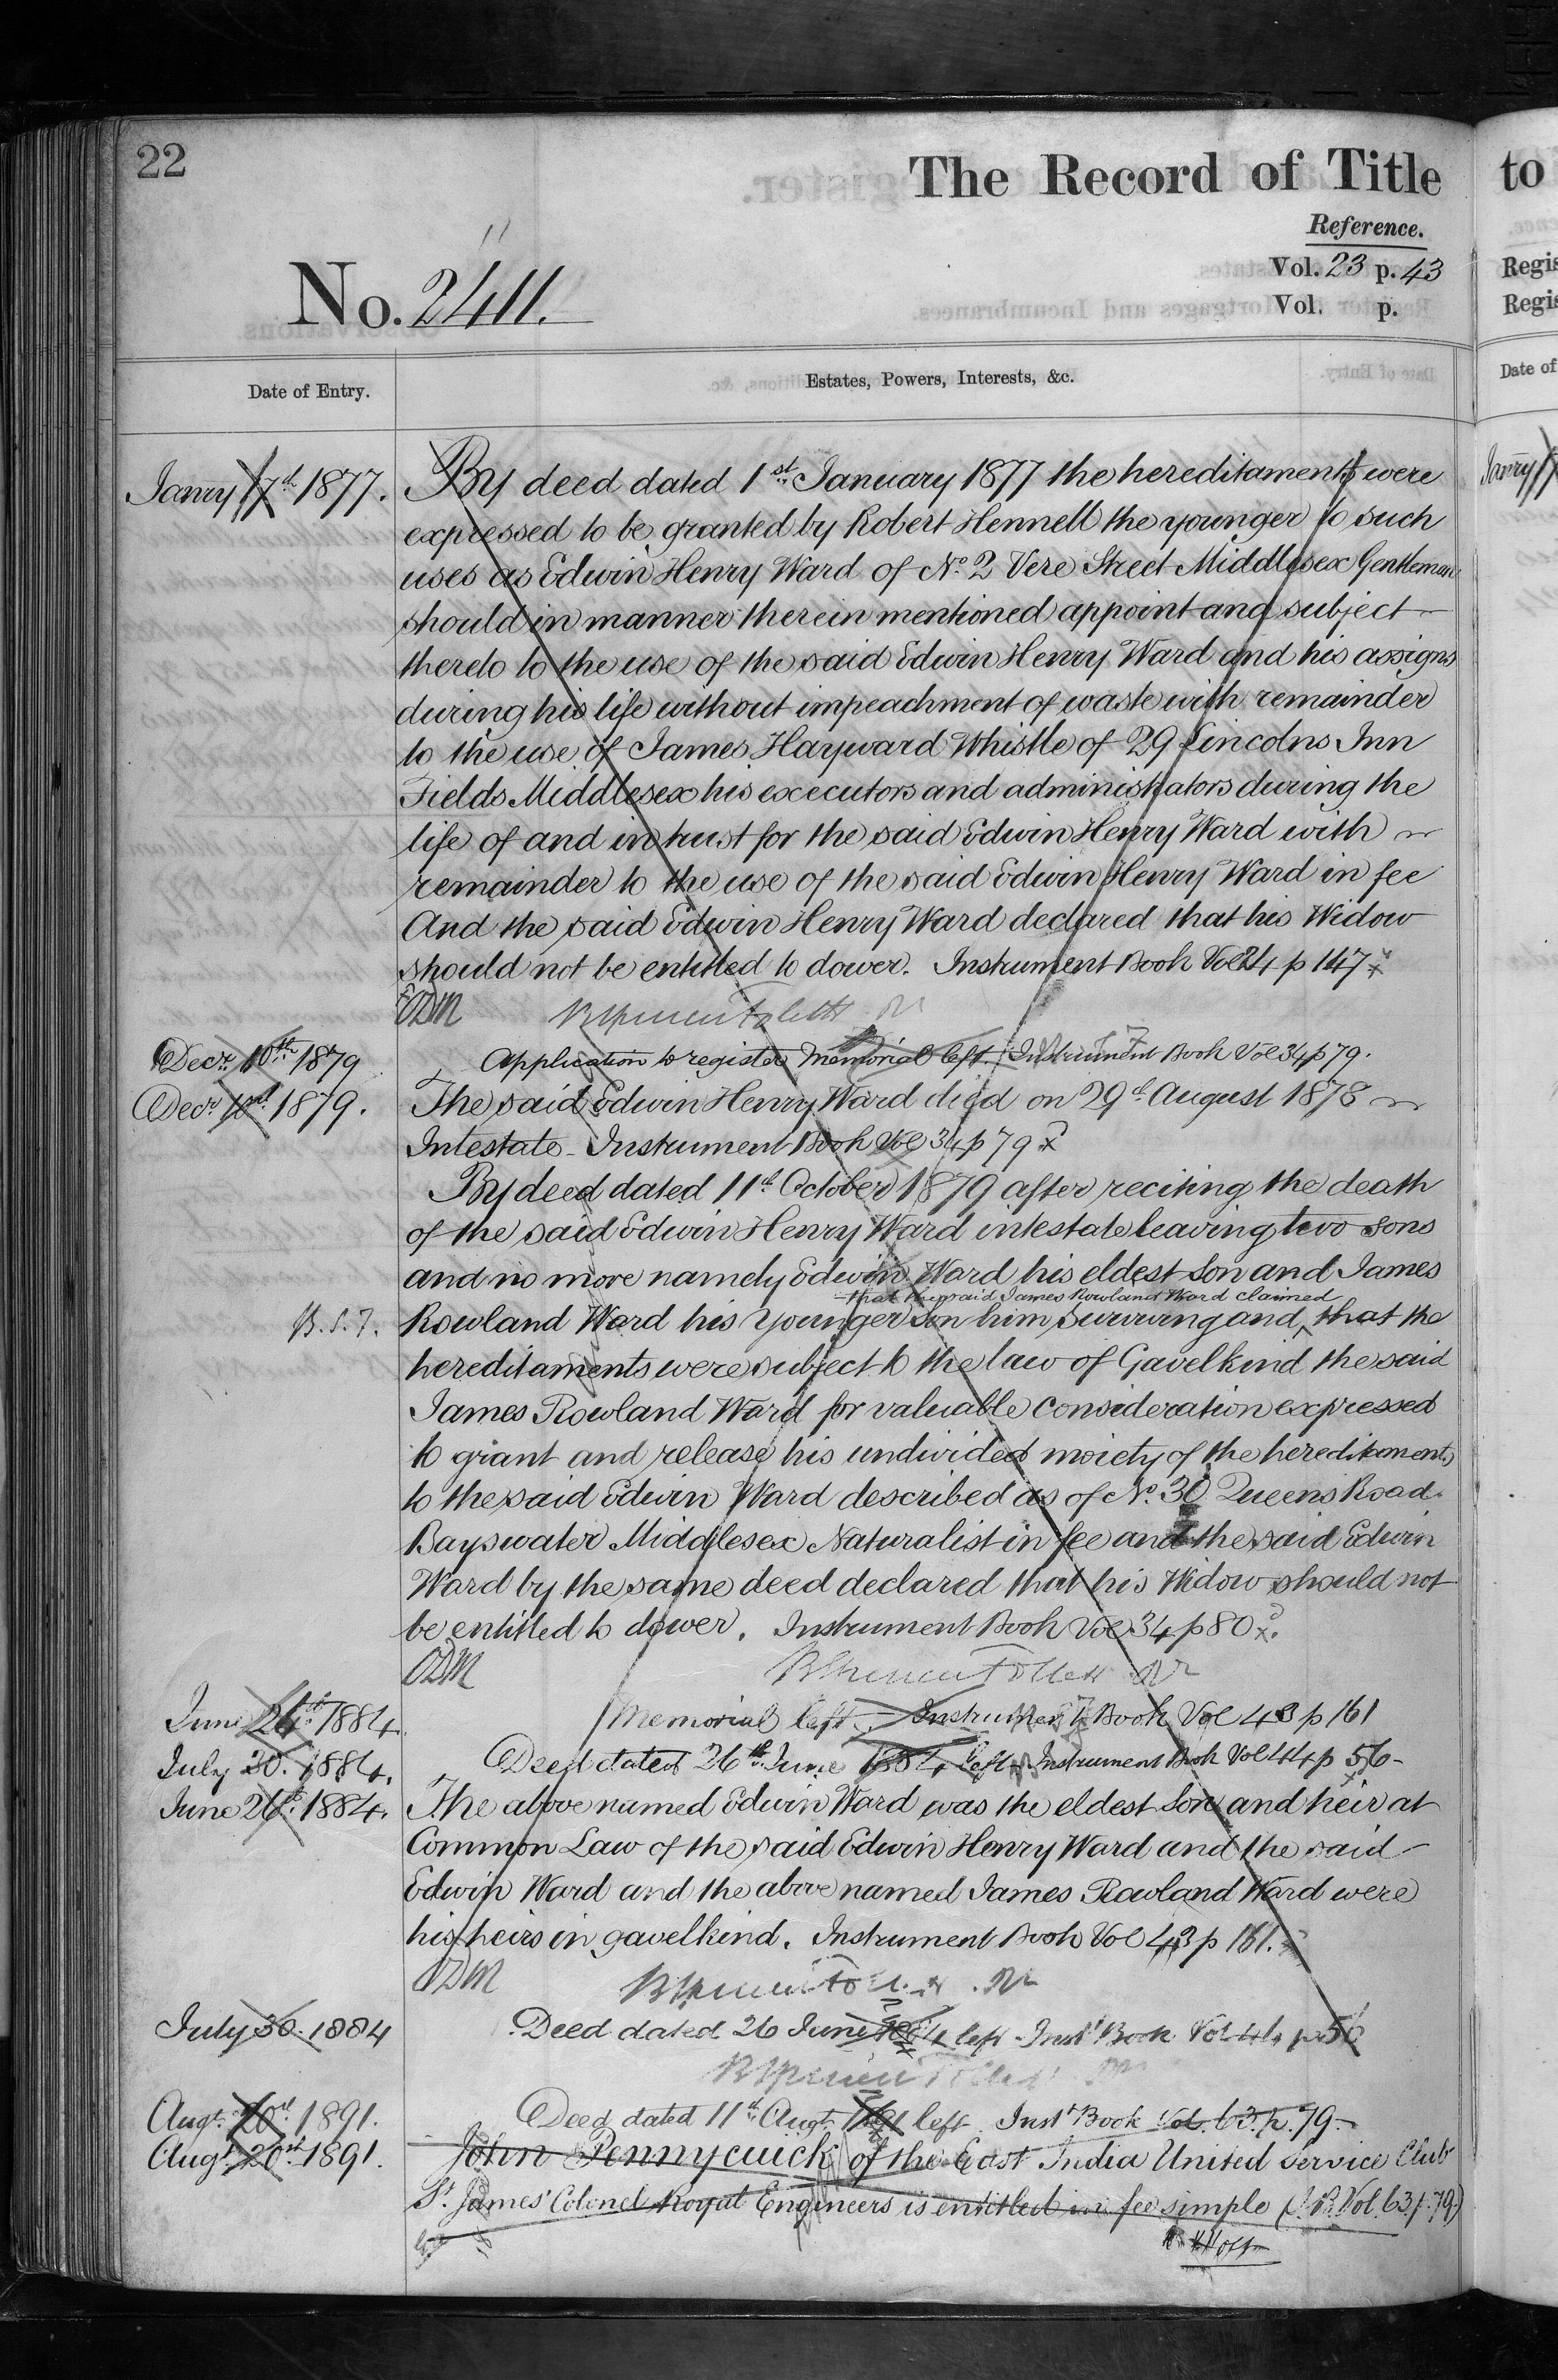 22
The Record of Title
to
Reference.
Vol. 23 p. 43
Vol. p.
No. 2411.
Regis
Regis
Date of Entry.
Estates, Powers, Interests, &c.
Date of
Janry 17th 1877.
By deed dated 1st January 1877 the hereditaments were
expressed to be granted by Robert Hennell the younger to such
uses as Edwin Henry Ward of No. 2 Vere Street Middlesex Gentleman
should in manner therein mentioned appoint and subject
thereto to the use of the said Edwin Henry Ward and his assigns
during his life without impeachment of waste with remainder
to the use of James Hayward Whistle of 29 Lincolns Inn
Fields Middlesex his executors and administrators during the
life of and in trust for the said Edwin Henry Ward with
remainder to the use of the said Edwin Henry Ward in fee
And the said Edwin Henry Ward declared that his Widow
should not be entitled to dower. Instrument Book Vol 24 p 147
ODM
Decr. 10th 1879 Application to register Memorial left. Instrument Book Vol 34 p 79.
Decr 1879. The said Edwin Henry Ward died on 29th August 1878
Intestate - Instrument Book Vol 34 p 79
By deed dated 11th October 1879 after reciting the death
of the said Edwin Henry Ward intestate leaving two sons
and no more namely Edwin Ward his eldest son and James
that the said James Rowland Ward claimed
Rowland Ward his younger son him surviving and that the
hereditaments were subject to the law of Gavelkind the said
James Rowland Ward for valuable consideration expressed
to grant and release his undivided moiety of the hereditaments
to the said Edwin Ward described as of No. 30 Queens Road
Bayswater Middlesex Naturalist in fee and the said Edwin
Ward by the same deed declared that his Widow should not
be entitled to dower. Instrument Book Vol 34 p 80.
ODM
June 26th 1884 Memorial left. Instrument Book Vol 43 p 161
July 30. 1884. Deed dated 26th June 1884 left Instrument Book Vol 44 p 56
June 26th 1884. The above named Edwin Ward was the eldest Son and heir at
Common Law of the said Edwin Henry Ward and the said
Edwin Ward and the above named James Rowland Ward were
his heirs in gavelkind. Instrument Book Vol 43 p 161.
ODM
July 30. 1884 Deed dated 26 June 1884 left Inst Book Vol 44 p 56
Augt. 20th 1891. Deed dated 11th Augt. 1891 left Inst Book Vol. 63. p. 79.
Augt. 20th 1891. John Pennycuick of the East India United Service Club
St. James' Colonel Royal Engineers is entitled in fee simple (I.B. Vol. 63. p. 79.)